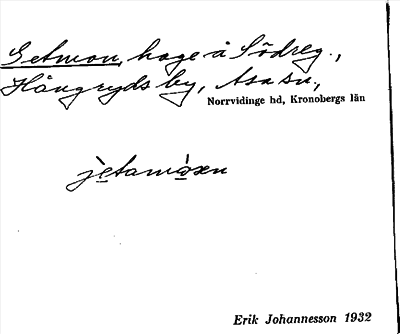 Getmon, hage å Södreg.,
Hångryds by, Asa sn.,
Norrvidinge hd, Kronobergs län
jètamòsen
Erik Johannesson 1932